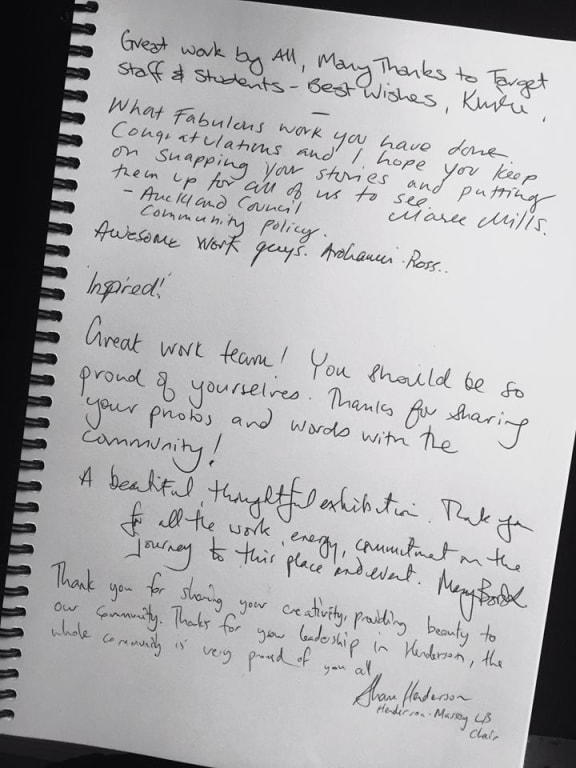 Great work by All, Many Thanks to Target
Staff & Students - Best Wishes,
What Fabulous work you have done
Congratulations and I hope you keep
on snapping your stories and putting
them up for all of us to see.
- Auckland Council Maree Mills.
Community policy.
Awesome work guys. Ross..
'Inspired!'
Great work team! You should be so
proud of yourselves. Thanks for sharing
your photos and words with the
community!
A beautiful, thoughtful exhibition. Thank you
for all the work, energy, commitment on the
journey to this place and event. Mary
Thank you for sharing your creativity, providing beauty to
our community. Thanks for your leadership in Henderson, the
whole community is very proud of you all
Shane Henderson
Henderson-Massey LB
Chair